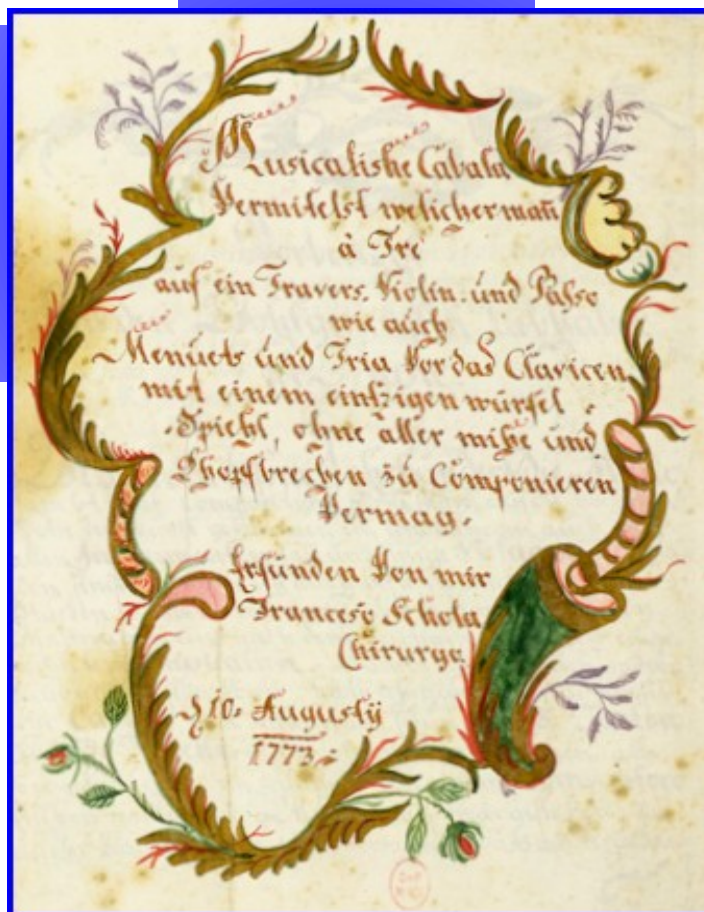 Musicalishe Cabala
Vermitelst welicher mañ
à Tre
auf ein Travers. Violin. und Passo
wie auch
Menuet und Tria Vor das Clavicen
mit einem eintzigen würfel
Spiehl, ohne aller mihe und
Khopfbrechen zu Componieren
Vermag.
Erfunden Von mir
Francesco Schola
Chirurgo
10. Augustÿ
1773.